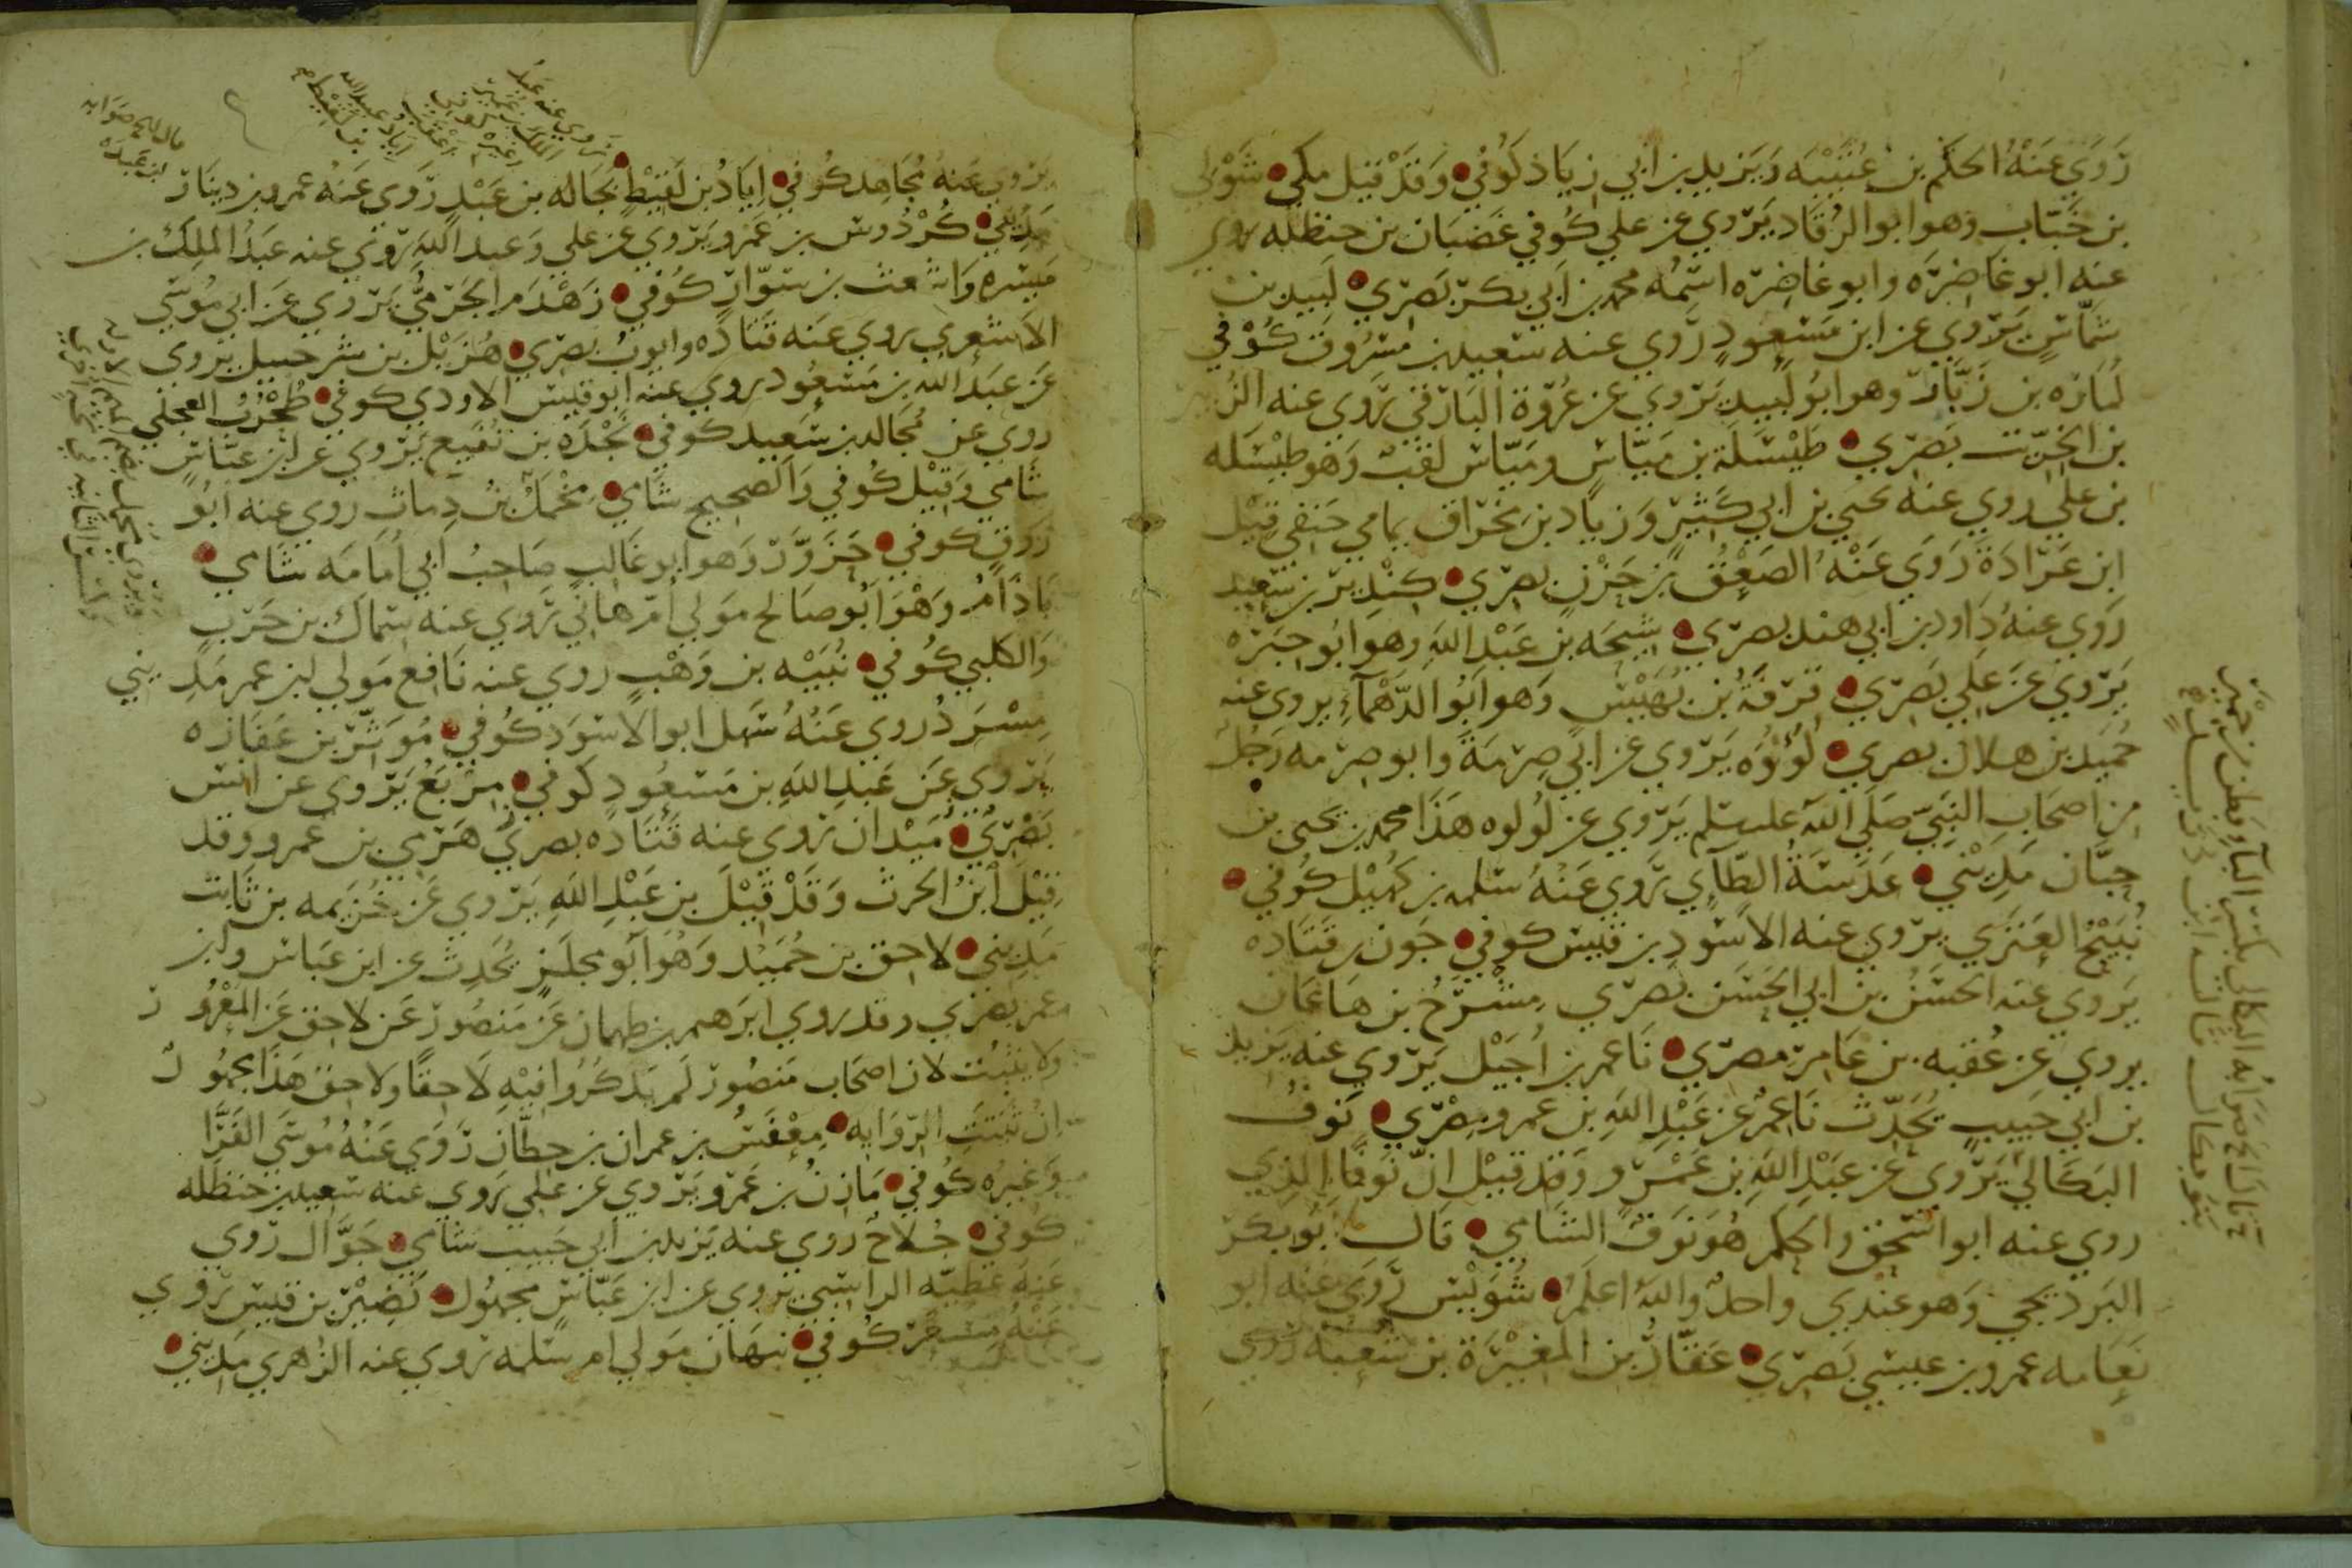 رَوَي عَنْهُ الحَكَم بن عُتَيْبَه وَيَزيد بن ابي زِيَاد كُوفي وَقَدْ قيل مكي شَوْل
بن خَبّاب وهو ابو الرُقَاد يَرْوي عن علي كُوفي غَضْبَان بن حنظله يروي
عنه ابو غاضِرَه وابو غاضِرَه اسْمُه محمد بن اَبي بكر بَصري لَبِيد بن
شَمّاسٍ يَرْوي عن ابن مَسْعودٍ رَوي عنه سَعيد بن مسْروق كُوْفي
لُمَازَه بن زَبَّارٍ وهو ابوُ لَبيدٍ يَرْوي عن عُرْوَة البَارقي يَروي عنه الزُبير
بن الخِرّيت بَصري طَيْسَلَة بن مَيّاسٍ ومَيّاسٌ لَقَبٌ وَهو طَيْسَله
بن علي روي عنه يحيي بن ابي كَثيْرٍ وَزيَاد بن مخْرَاق يمامي حَنَفي قِيْل
ابن عَرَادَة رَوَي عَنْهُ الصَعِْق بن حَزْنٍ بصري كِنْدِير بن سَعِيد
رَوَي عنهُ دَاود بن ابي هند بصري شِيْحَه بن عَبْد الله وهو ابو حِبَرَه
يَرْوي عَن عَلي بَصري قِرْفَةُ بن بُهَيْسٍ وَهو اَبُو الدَّهْمَآءِ يروي عنه
حُمَيد بن هلال بصري لُؤْلُؤَه يَرْوي عن ابي صِرْمَةَ وابو صِرْمه رَجُلٌ
من اصحَاب النَبِيّ صَلَي الله عليه سلم يَرْوي عن لُولوه هَذَا محمد بن يحيى بن
حِبَّان مَدِيْني عَدَسَةُ الطَّايِ يَرَوي عَنْهُ سَلمه بن كُهَيْل كُوفي
نُبَيْحُ العَنَزي يَروي عنه الاَسْود بن قيس كوفي جَون بن قتَادَه
يَروي عنه الحَسَنُ بن ابي الحَسَن بَصري مِشْرَحُ بن هَاعَان
يروي عن عُقبه بن عَامر مصري نَاعمر بن اُجَيْل يَرْوي عنه يَزيد
بن ابي حَبيبٍ يُحَدّث نَاعمُر عن عَبْد الله بن عمرو مِصْري نَوفُ
البَكَاليّ يَرْوي عن عَبْد الله بن عَمْرٍو وَقد قِيْل انّ نَوفًا الذِي
روي عنه ابو اسْحق راكلم هُوَ نَوفٌ الشَّامي قَال ابُو بكر
البَرْديجي وَهو عندي واحدٌ والله اعلَمُ شُوَيْس رَوَي عَنه ابو
نَعَامه عمرو بن عيسَي بَصري عَقَّارُ بن المغيرَة بن شُعْبَه رَوي
يَرْوي عَنه مُجَاهد كُوفي اِيَادُ بن لَقِيْطٍ بُجَاله بن عَبْدٍ رَوي عَنهُ عمرو بن دينَار
مَدِيْني كُرْدُوس بن عَمْرو يَرْوي عن علي وَعبد الله يَروي عنه عَبدُ المِلك بن
مَيْسَره وَاشْعث بن سَوّارٍ كُوفي زَهْدَم الجَرْميُّ يَرْوي عَن ابي مُوسَي
الاَشعري يروي عَنه قتَادَه وايوبُ بصري هُزَيْل بن شرحبيل يَروي
عَن عَبد الله بن مَسْعُود يروي عنه ابو قيْس الاَودي كوفي طُحْرُبُ العِجلي
روي عن مُجَالد بن سَعيد كوفي نَجْدَه بن نُفَيع يَرْوي عن ابن عبّاسٍ
شَامي وَقِيْل كُوفي وَالصحيح شَامي مِخْمَلُ بن دِمَاث روي عنه ابوُ
رَوقٍ كوفي حَزَوَّرٌ وَهو ابو غالبٍ صَاحبُ اَبي اُمَامَه شامي
بَاذَامُ وَهْوَ اَبُو صالح مَولي اُمّ هانئ يَروي عنه سِمَاك بن حَرْبٍ
وَالكلبي كُوفي نُبَيْه بن وَهْبٍ روي عنه نَافع مَولي ابن عمر مَدِيني
مِسْرَدُ روي عَنهُ سَهل ابو الاَسْوَد كُوفي مُوَثّر بن عَفَازَه
يَروي عَن عَبد الله بن مَسعُودٍ كوفي مِرْبَعُ يَرْوي عن انَس
بَصْري مَيْدان يَروي عنه قَتَادَه بصري هَرَمي بن عَمرو وقد
قِيْلَ اَبنُ الحرث وَقَدْ قيْلَ بن عَبْد الله يَرْوي عَن خُزيمه بن ثابت
مَدِيني لاحِق بن حُمَيْد وَهُوَ اَبو مجلَزٍ يُحَدِث عن ابن عَبّاس وابن
عمر بصري وقد روي ابرَهم بن طهمان عَن مَنصُور عَن لاحق عَن المَعْرُور
ولا يَثبُت لان اصحَاب مَنصُور لَم يَذكرُوا فيْهِ لَاحقًا ولاحق هَذا مجهُول
اِنْ ثبتَتِ الرّوَايه مِعْفَسُ بن عمران بن حطّان رَوَي عَنهُ مُوسَي الفَرّا
وَغيْرُه كُوفي مَازِنُ بن عَمْرو يَرْوي عن عَلي يَروي عنه سَعيد بن حنظله
كُوفي جُلَاحُ روي عنه يَزيد بن ابي حَبيب شامي جَوَّال روي
عَنهُ عَطيّه الراسبي يَروي عن ابن عَبّاسٍ مجهُول نُضَيْر بن قيس يَروي
عَنْهُ مسْعَر كُوفي نبهَان مَولي ام سَلمه يَروي عنه الزهري مَدِيني